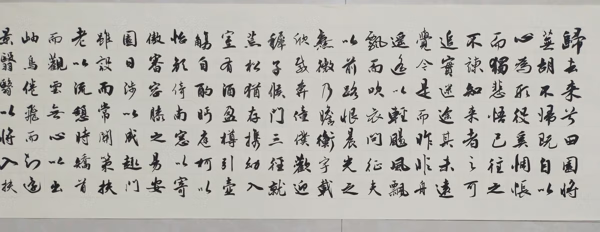 歸去来兮田園將
蕪胡不歸既自以
心為形役奚惆悵
而獨悲悟已往之
不諫知来者之可
追實迷途其未遠
覺今是而昨非舟
遥遥以輕颺風飄
飄而吹衣問征夫
以前路恨晨光之
熹微乃瞻衡宇載
欣載奔僮僕歡迎
稚子候門三徑就
荒松猶存攜幼入
室有酒盈樽引壺
觴自酌眄庭柯以
怡顏倚南窗以寄
傲審容膝之易安
園日涉以成趣門
雖設而常關策扶
老以流憩時矯首
而觀雲無心以出
岫鳥倦飛而知還
景翳翳以將入扶